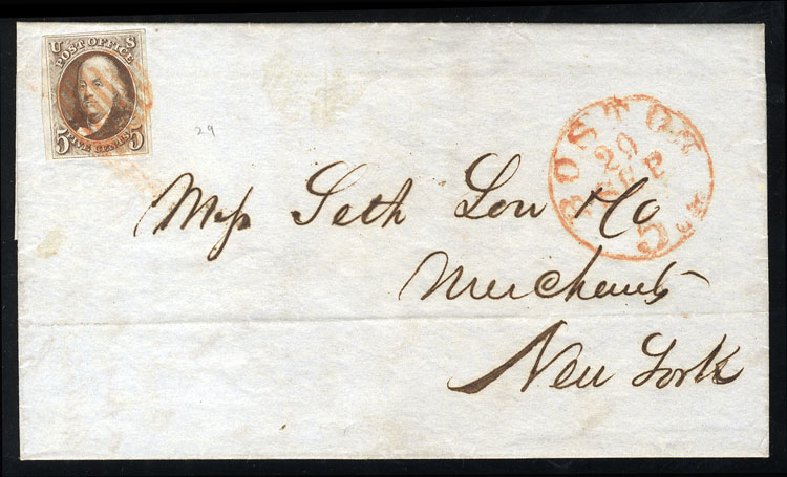 U S
POST OFFICE
5 FIVE CENTS 5
29
BOSTON
20
5
Mess Seth Low & Co
Merchants
New York